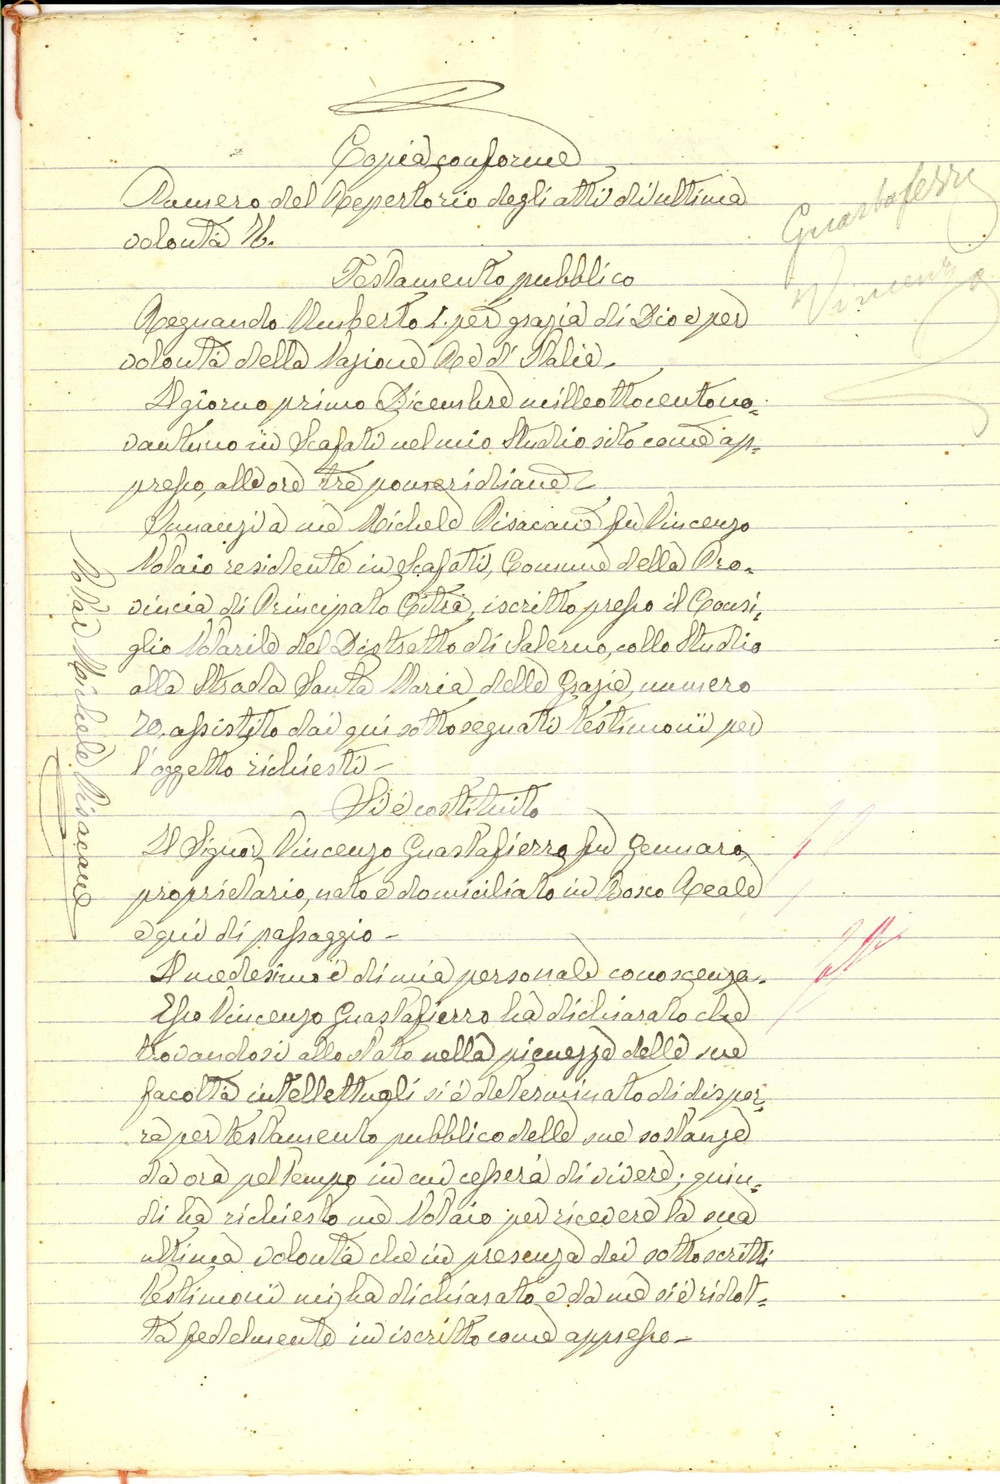 Copia conforme
Numero del Repertorio degli atti di ultima
volontà 76.
Testamento pubblico
Regnando Umberto I. per grazia di Dio e per
volontà della Nazione Re d'Italia.
Il giorno primo Dicembre milleottocentono=
vantuno in Scafati nel mio Studio sito come ap=
presso, alle ore tre pomeridiane
Innanzi a me Michele Pisacane fu Vincenzo
Notaio residente in Scafati, Comune della Pro=
vincia di Principato Citra, iscritto presso il Consi=
glio Notarile del Distretto di Salerno, collo Studio
alla Strada Santa Maria delle Grazie, numero
70, assistito dai qui sottosegnati testimonii per
l'oggetto richiesti –
Si è costituito
Il Signor Vincenzo Guastafierro fu Gennaro,
proprietario, nato e domiciliato in Bosco Reale
e qui di passaggio –
Il medesimo è di mia personale conoscenza.
Esso Vincenzo Guastafierro ha dichiarato che
trovandosi allo stato nella pienezza delle sue
facoltà intellettuali si è determinato di dispor=
re per testamento pubblico delle sue sostanze
da ora pel tempo in cui cesserà di vivere; quin=
di ha richiesto me Notaio per ricevere la sua
ultima volontà che in presenza dei sottoscritti
testimonii mi ha dichiarato e da me si è ridot=
ta fedelmente in iscritto come appresso –
Notar Michele Pisacane
Guastaferri
Vincenzo